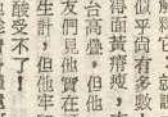 似乎尚有多數
得面黃瘠瘦，
台高疊，但他
友們見他實在
生計，但他牢
酸受不了！